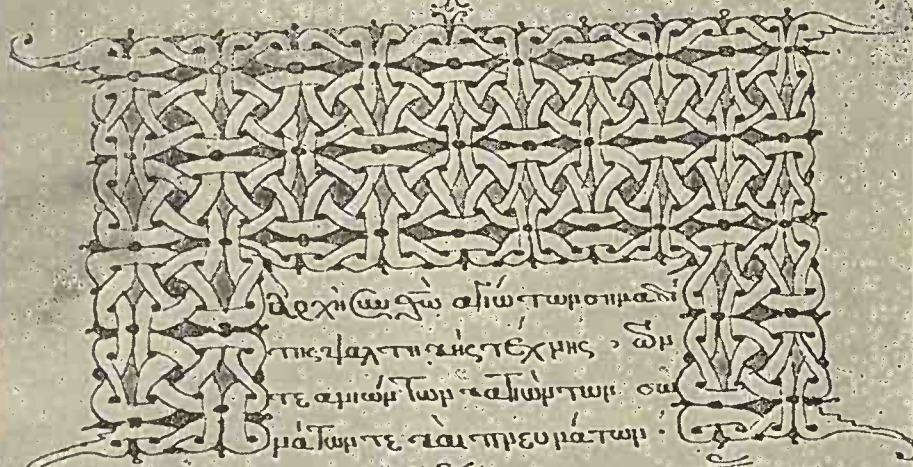 Ἀρχὴ σὺν θῶ ἁγίω τῶν σημαδί
της ψαλτικῆς τέχνης · τῶν
τε ἀνιόντων κατιόντων σω
μάτων τε καὶ πνευμάτων ·